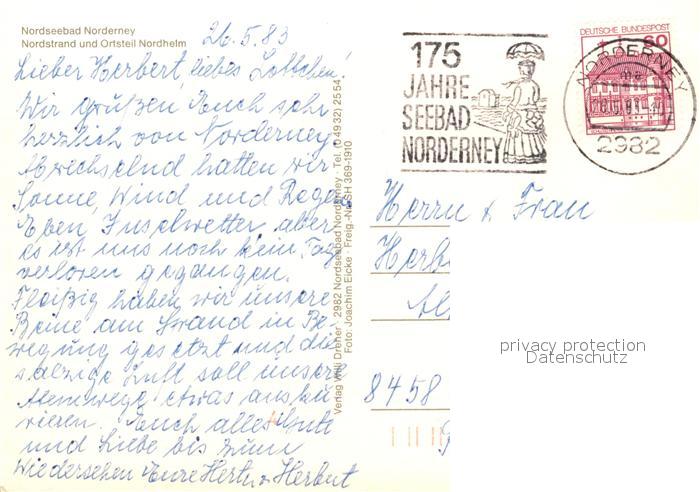 Nordseebad Norderney
Nordstrand und Ortsteil Nordhelm
26.5.83
Lieber Herbert, liebes Lottchen!
Wir grüßen Euch sehr
herzlich von Norderney.
Abwechselnd hatten wir
Sonne, Wind und Regen
Eben, Inselwetter, aber
es ist uns noch kein Tag
verloren gegangen.
Fleißig haben wir unsere
Beine am Strand in Be-
wegung gesetzt und die
salzige Luft soll unsere
Atemwege etwas ausku-
rieren. Euch alles Gute
und Liebe bis zum
Wiedersehen Eure Herta u. Herbert
Verlag Willi Dreher · 2982 Nordseebad Norderney · Tel. (0 49 32) 25 54
Foto: Joachim Eicke · Freig.-Nr. SH 369-1910
175
JAHRE
SEEBAD
NORDERNEY
DEUTSCHE BUNDESPOST
60
NORDERNEY
2982
Herrn u. Frau
8458
privacy protection
Datenschutz